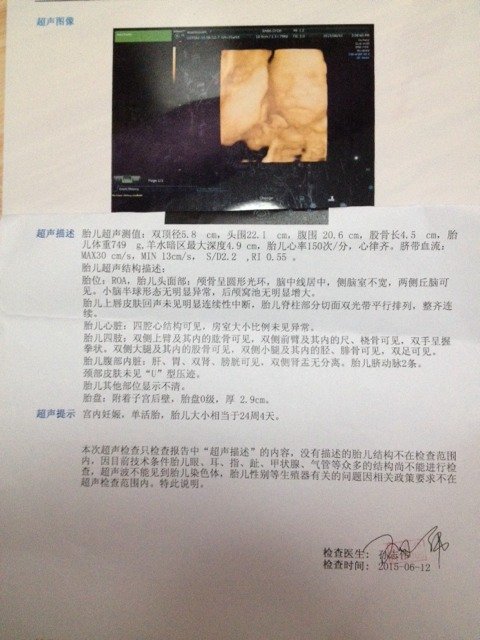 超声图像
超声描述 胎儿超声测值：双顶径5.8 cm，头围22.1 cm，腹围 20.6 cm，股骨长4.5 cm，胎
儿体重749 g,羊水暗区最大深度4.9 cm，胎儿心率150次/分，心律齐。脐带血流：
MAX30 cm/s，MIN 13cm/s， S/D2.2 ,RI 0.55 。
胎儿超声结构描述：
胎位：ROA，胎儿头面部：颅骨呈圆形光环，脑中线居中，侧脑室不宽，两侧丘脑可
见。小脑半球形态无明显异常，后颅窝池无明显增大。
胎儿上唇皮肤回声未见明显连续性中断，胎儿脊柱部分切面双光带平行排列，整齐连
续。
胎儿心脏：四腔心结构可见，房室大小比例未见异常。
胎儿四肢：双侧上臂及其内的肱骨可见，双侧前臂及其内的尺、桡骨可见，双手呈握
拳状。双侧大腿及其内的股骨可见，双侧小腿及其内的胫、腓骨可见，双足可见。
胎儿腹部内脏：肝、胃、双肾、膀胱可见，双侧肾盂无分离。胎儿脐动脉2条。
颈部皮肤未见“U”型压迹。
胎儿其他部位显示不清。
胎盘：附着子宫后壁，胎盘0级，厚 2.9cm。
超声提示 宫内妊娠，单活胎，胎儿大小相当于24周4天。
本次超声检查只检查报告中“超声描述”的内容，没有描述的胎儿结构不在检查范围
内，因目前技术条件胎儿眼、耳、指、趾、甲状腺、气管等众多的结构尚不能进行检
查，超声波不能见到胎儿染色体，胎儿性别等生殖器有关的问题因相关政策要求不在
超声检查范围内。特此说明。
检查医生：
检查时间： 2015-06-12